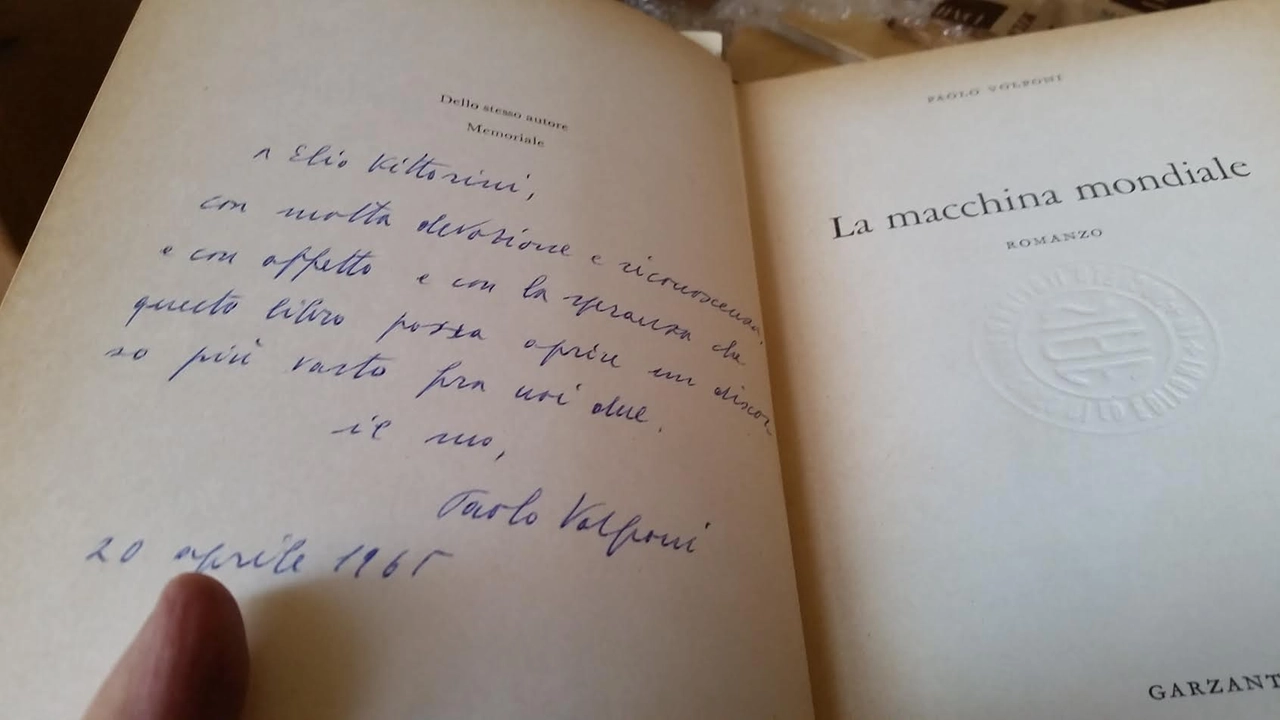 Dello stesso autore
Memoriale
A Elio Vittorini,
con molta devozione e riconoscenza,
e con affetto e con la speranza che
questo libro possa aprire un discor
so più vasto fra noi due.
il suo,
Paolo Volponi
20 aprile 1965
PAOLO VOLPONI
La macchina mondiale
ROMANZO
SIAE
GARZANT